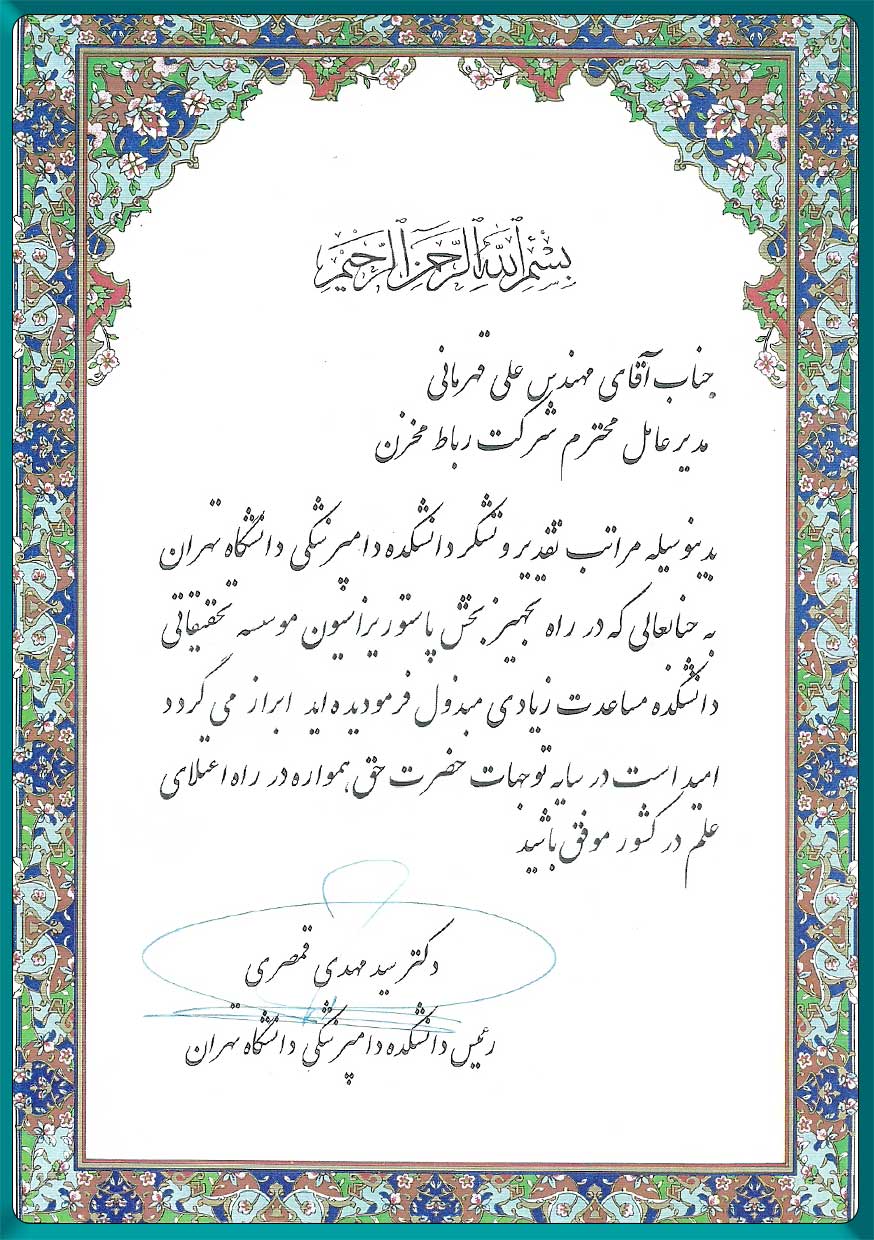 بسم الله الرحمن الرحیم
جناب آقای مهندس علی قهرمانی
مدیر عامل محترم شرکت رباط مخزن
بدینوسیله مراتب تقدیر و تشکر دانشکده دامپزشکی دانشگاه تهران
به جنابعالی که در راه تجهیز بخش پاستوریزاسیون موسسه تحقیقاتی
دانشکده مساعدت زیادی مبذول فرمودیده اید ابراز می گردد
امید است در سایه توجهات حضرت حق همواره در راه اعتلای
علم در کشور موفق باشید
دکتر سید مهدی قمصری
رئیس دانشکده دامپزشکی دانشگاه تهران